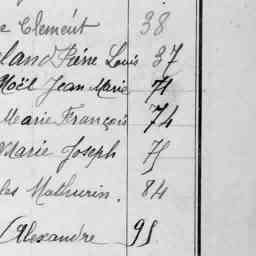 e Clemént 38
land Pierre Louis 37
Noël Jean Marie 71
Marie François 74
Marie Joseph 75
les Mathurin. 84
Alexandre 95